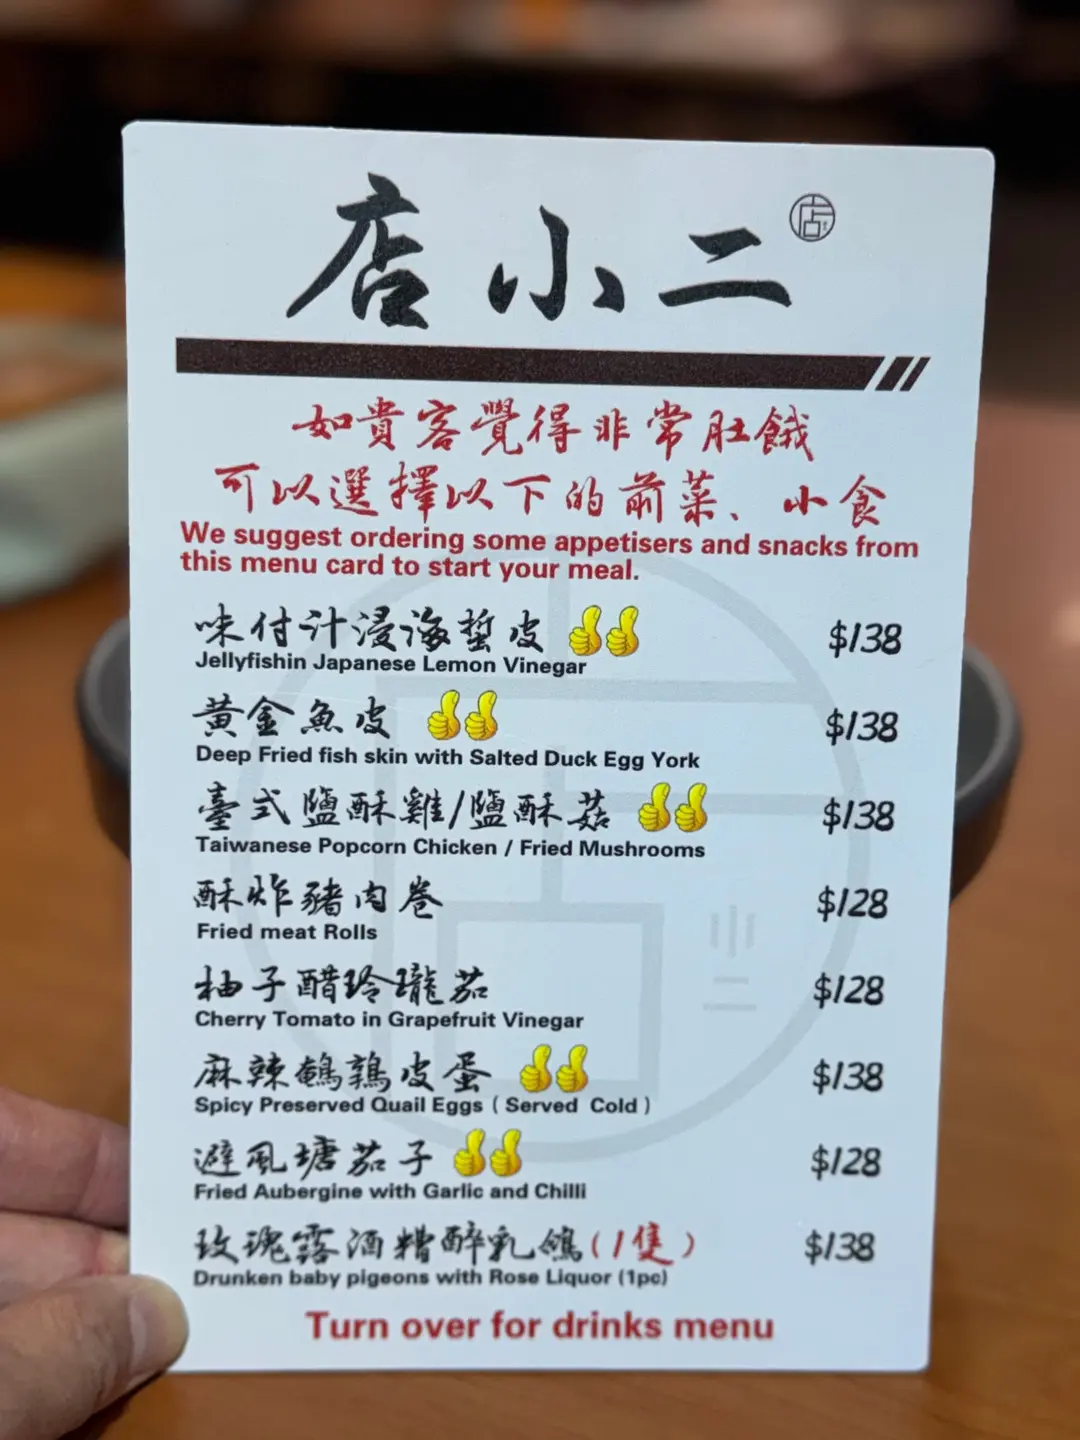 店小二
店
如貴客覺得非常肚餓
可以選擇以下的前菜、小食
We suggest ordering some appetisers and snacks from
this menu card to start your meal.
味付汁浸海蜇皮 $138
Jellyfishin Japanese Lemon Vinegar
黃金魚皮 $138
Deep Fried fish skin with Salted Duck Egg York
臺式鹽酥雞/鹽酥菇 $138
Taiwanese Popcorn Chicken / Fried Mushrooms
酥炸豬肉卷 $128
Fried meat Rolls
柚子醋玲瓏茄 $128
Cherry Tomato in Grapefruit Vinegar
小二
麻辣鵪鶉皮蛋 $138
Spicy Preserved Quail Eggs ( Served Cold )
避風塘茄子 $128
Fried Aubergine with Garlic and Chilli
玫瑰露酒糟醉乳鴿(1隻) $138
Drunken baby pigeons with Rose Liquor (1pc)
Turn over for drinks menu